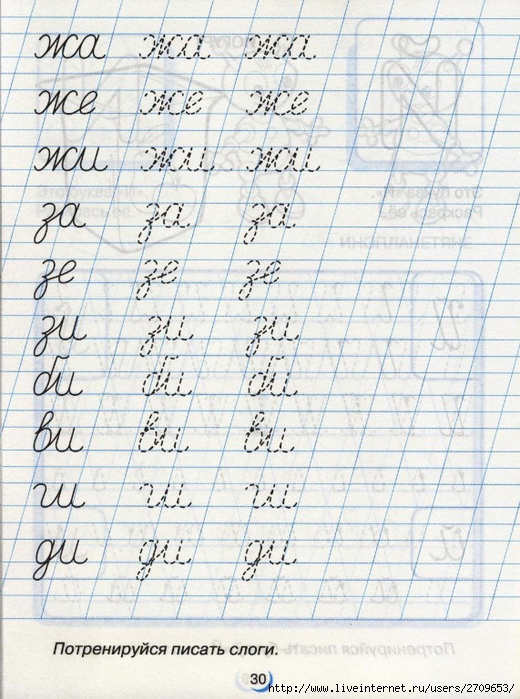 жа жа жа
же же же
жи жи жи
за за за
зе зе зе
зи зи зи
би би би
ви ви ви
ги ги ги
ди ди ди
Потренируйся писать слоги.
30
http://www.liveinternet.ru/users/2709653/